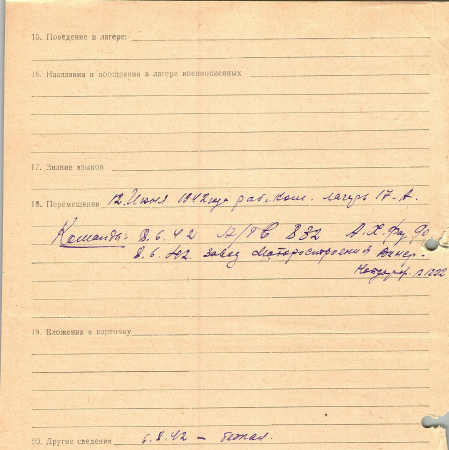 15. Поведение в лагере:
16. Наказания и поощрения в лагере военнопленных
17. Знание языков
18. Перемещения 12 Июня 1942 года раб. ком. лагерь 17-А.
Команды: 8.6.42 832 А.Х. 90
8.6.42. завод Моторостроения
19. Вложения в карточку
20. Другие сведения 6.8.42 – бежал.